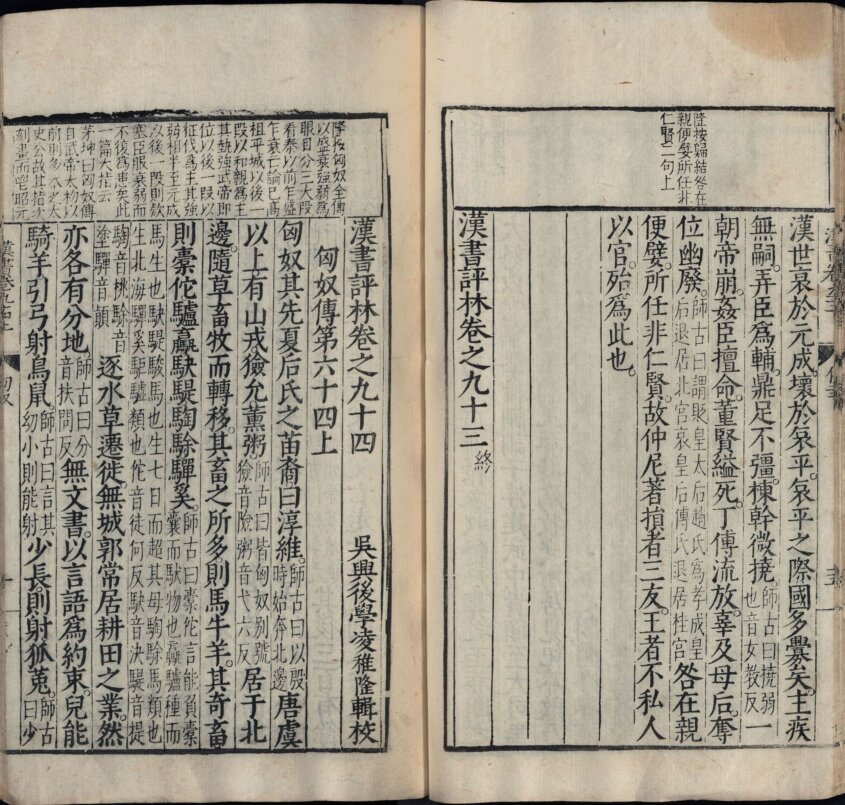 隆按歸結咎在
親便嬖所任非
仁賢二句上
漢世衰於元成壞於哀平哀平之際國多釁矣主疾
無嗣弄臣爲輔鼎足不彊棟幹微撓師古曰撓弱也音女教反一
朝帝崩姦臣擅命董賢縊死丁傅流放辜及母后奪
位幽廢師古曰謂貶皇太后趙氏爲孝成皇后退居北宮哀皇后傅氏退居桂宮咎在親
便嬖所任非仁賢故仲尼著損者三友王者不私人
以官殆爲此也
漢書評林卷之九十三 終
隆按匈奴全傳
以盛衰強弱爲
眼目分三大段
看秦以前乍盛
乍衰亡論已高
祖平城以後一
段以和親爲主
其勢強武帝即
位以後一段以
征伐爲主其強
弱相半至元成
以後一段則欵
塞臣服衰弱而
不復爲患矣此
一篇大指云
茅坤曰匈奴傳
自武帝太初以
前則多本之太
史公故其指次
刻畫而
漢書評林卷之九十四
吳興後學凌稚隆輯校
匈奴傳第六十四上
匈奴其先夏后氏之苗裔曰淳維師古曰以殷時始奔北邊唐虞
以上有山戎獫允薰粥師古曰皆匈奴別號獫音險粥音弋六反居于北
邊隨草畜牧而轉移其畜之所多則馬牛羊其奇畜
則橐佗驢驘駃騠騊駼驒奚師古曰橐佗言能負橐囊而馱物也驘驢種而
馬生也駃騠駿馬也生七日而超其母騊駼馬類也
生北海驒奚駏驢類也佗音徒何反駃音決騠音提
騊音桃駼音塗驒音顛逐水草遷徙無城郭常居耕田之業然
亦各有分地師古曰分音扶問反無文書以言語爲約束兒能
騎羊引弓射鳥鼠師古曰言其幼小則能射少長則射狐菟師古曰少